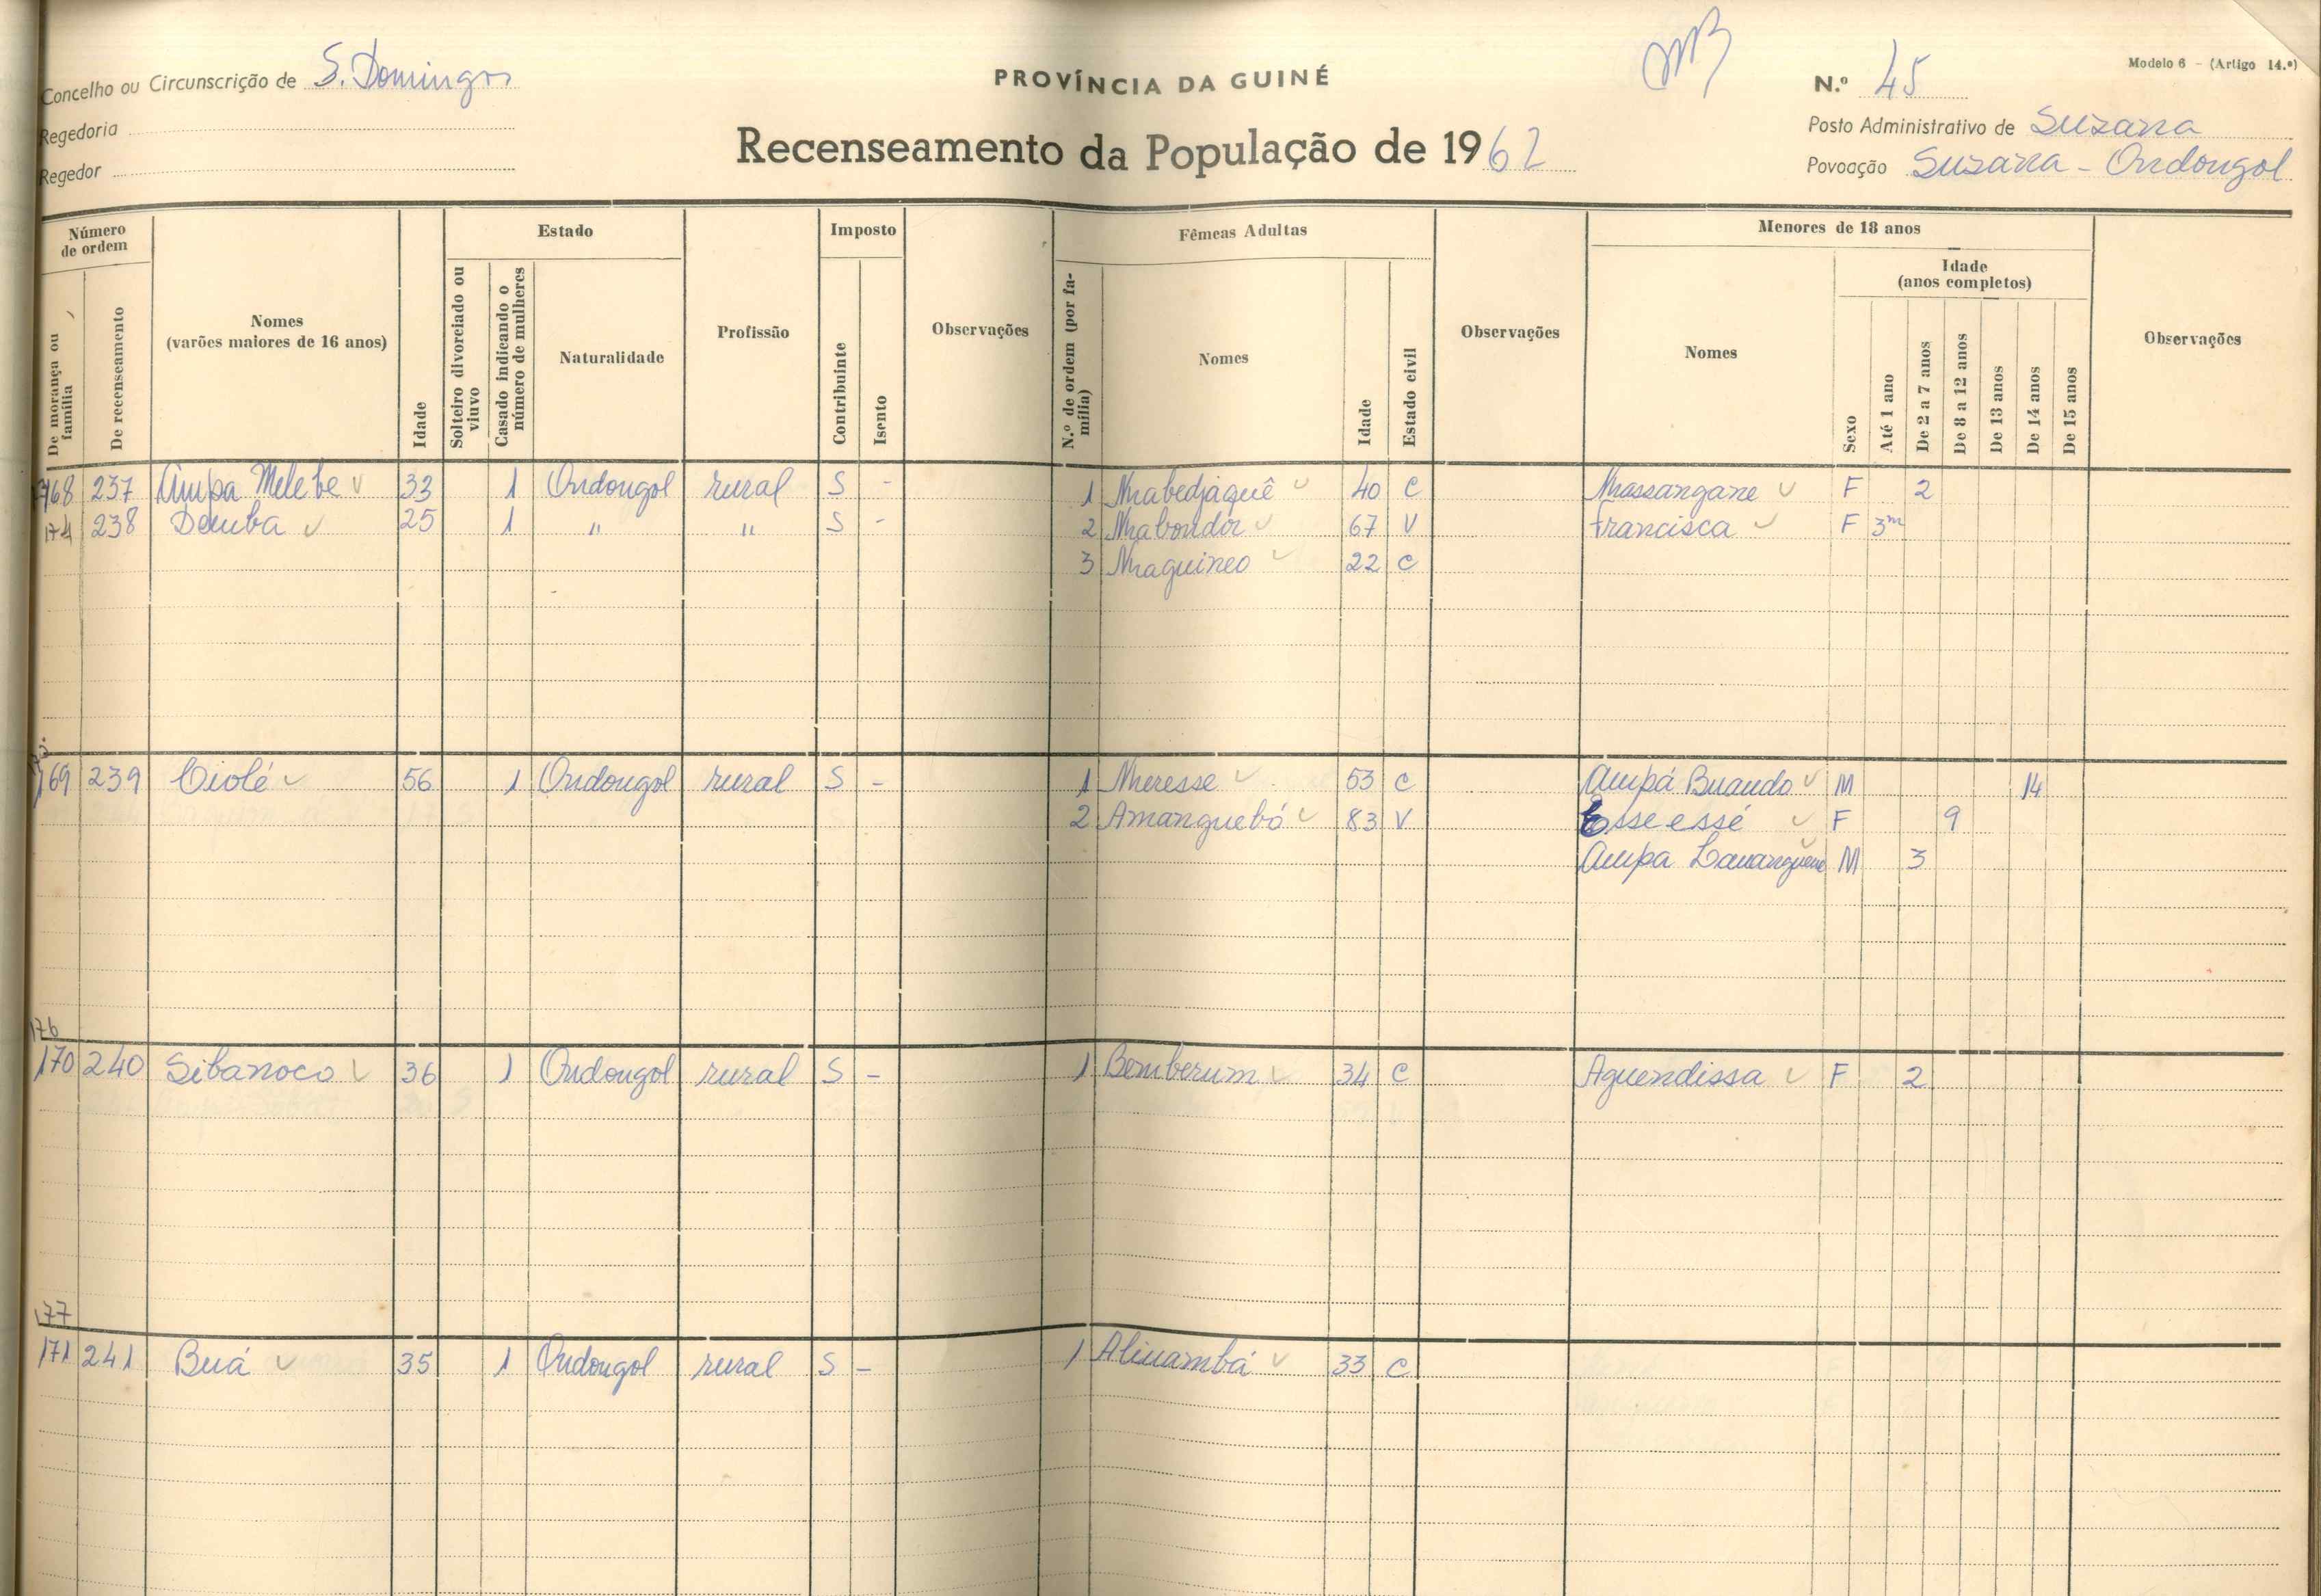 Concelho ou Circunscrição de S. Domingos
Regedoria
Regedor
PROVÍNCIA DA GUINÉ
Recenseamento da População de 1962
Modelo 6 - (Artigo 14.º)
N.º 45
Posto Administrativo de Suzana
Povoação Suzana - Ondongol
Número de ordem
De morança ou família
De recenseamento
Nomes
(varões maiores de 16 anos)
Idade
Estado
Solteiro divorciado ou viuvo
Casado indicando o número de mulheres
Naturalidade
Profissão
Imposto
Contribuinte
Isento
Observações
Fêmeas Adultas
N.º de ordem (por família)
Nomes
Idade
Estado civil
Observações
Menores de 18 anos
Nomes
Sexo
Idade
(anos completos)
Até 1 ano
De 2 a 7 anos
De 8 a 12 anos
De 13 anos
De 14 anos
De 15 anos
Observações
168 237 Ampa Melebe 33 1 Ondongol rural S - 1 Nhabedjaquê 40 C Nhassangane F 2
174 238 Demba 25 1 " " S - 2 Nhabondor 67 V Francisca F 3m
3 Nhaguineo 22 C
169 239 Ciolé 56 1 Ondongol rural S - 1 Nheresse 53 C Ampá Buando M 14
2 Amanguebó 83 V Esseessé F 9
Ampa M 3
176
170 240 Sibanoco 36 1 Ondongol rural S - 1 Bomberum 34 C Aguendissa F 2
177
171 241 Buá 35 1 Ondongol rural S - 1 Alinambá 33 C